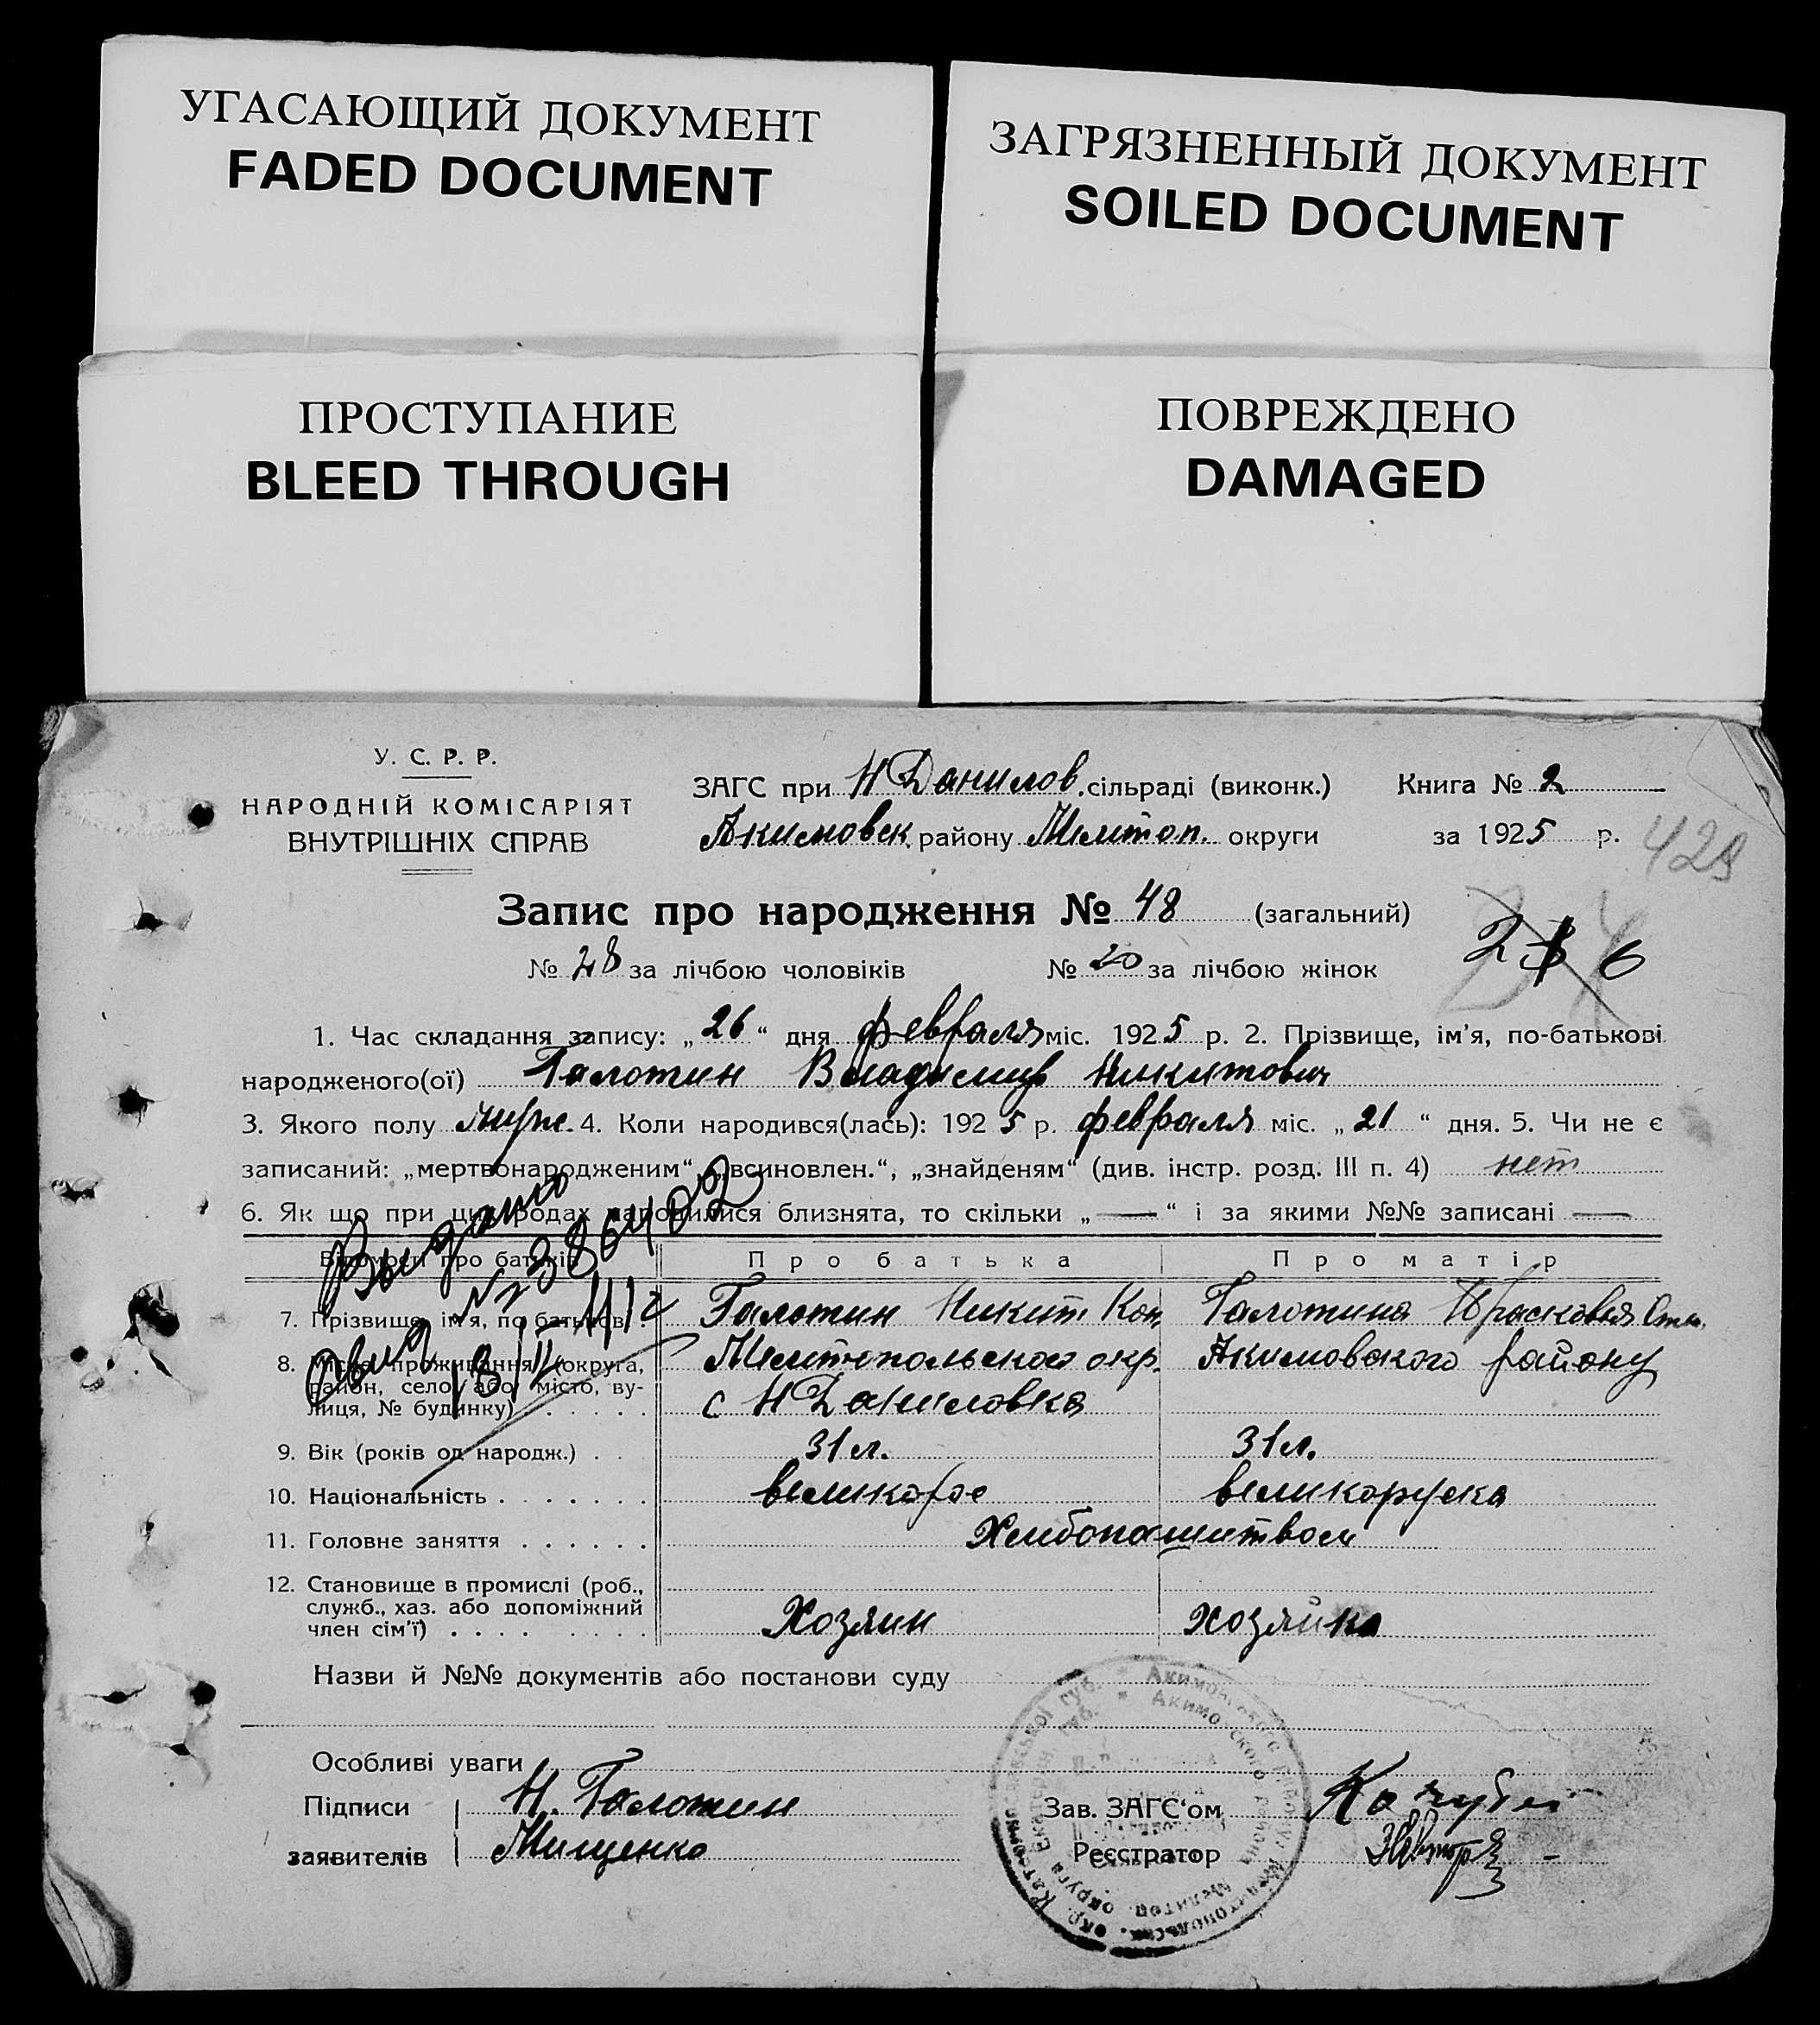 УГАСАЮЩИЙ ДОКУМЕНТ
FADED DOCUMENT
ЗАГРЯЗНЕННЫЙ ДОКУМЕНТ
SOILED DOCUMENT
ПРОСТУПАНИЕ
BLEED THROUGH
ПОВРЕЖДЕНО
DAMAGED
У. С. Р. Р.
НАРОДНІЙ КОМІСАРІЯТ
ВНУТРІШНІХ СПРАВ
ЗАГС при Н Данилов. сільраді (виконк.) Книга № 2
Акимовск району Мелитоп. округи за 1925 р.
428
Запис про народження № 48 (загальний)
№ 28 за лічбою чоловіків № 20 за лічбою жінок
1. Час складання запису: „26“ дня февраля міс. 1925 р. 2. Прізвище, ім'я, по-батькові
народженого(ої) Галотин Владимир Никитович
3. Якого полу муж. 4. Коли народився(лась): 1925 р. февраля міс. „21“ дня. 5. Чи не є
записаний: „мертвонародженим“, „всиновлен.“, „знайденям“ (див. інстр. розд. III п. 4) нет
6. Як що при цих родах народилися близнята, то скільки „—“ і за якими №№ записані —
Відомості про батьків Про батька Про матір
7. Прізвище, ім'я, по батьков. Галотин Никит. Кон. Галотина Прасковья Сте.
8. Місце проживання (округа, район, село або місто, вулиця, № будинку) Мелитопольского окр. Акимовского району
с Н Даниловка
9. Вік (років од народж.) 31 л. 31 л.
10. Національність великорос великоруска
11. Головне заняття Хлибопашитвом
12. Становище в промислі (роб., служб., хаз. або допоміжний член сім'ї) Хозяин хозяйка
Выдано
№ 3864102
Назви й №№ документів або постанови суду
Особливі уваги
Підписи Н. Галотин Зав. ЗАГС'ом Кочубей
заявителів Мищенко Реєстратор